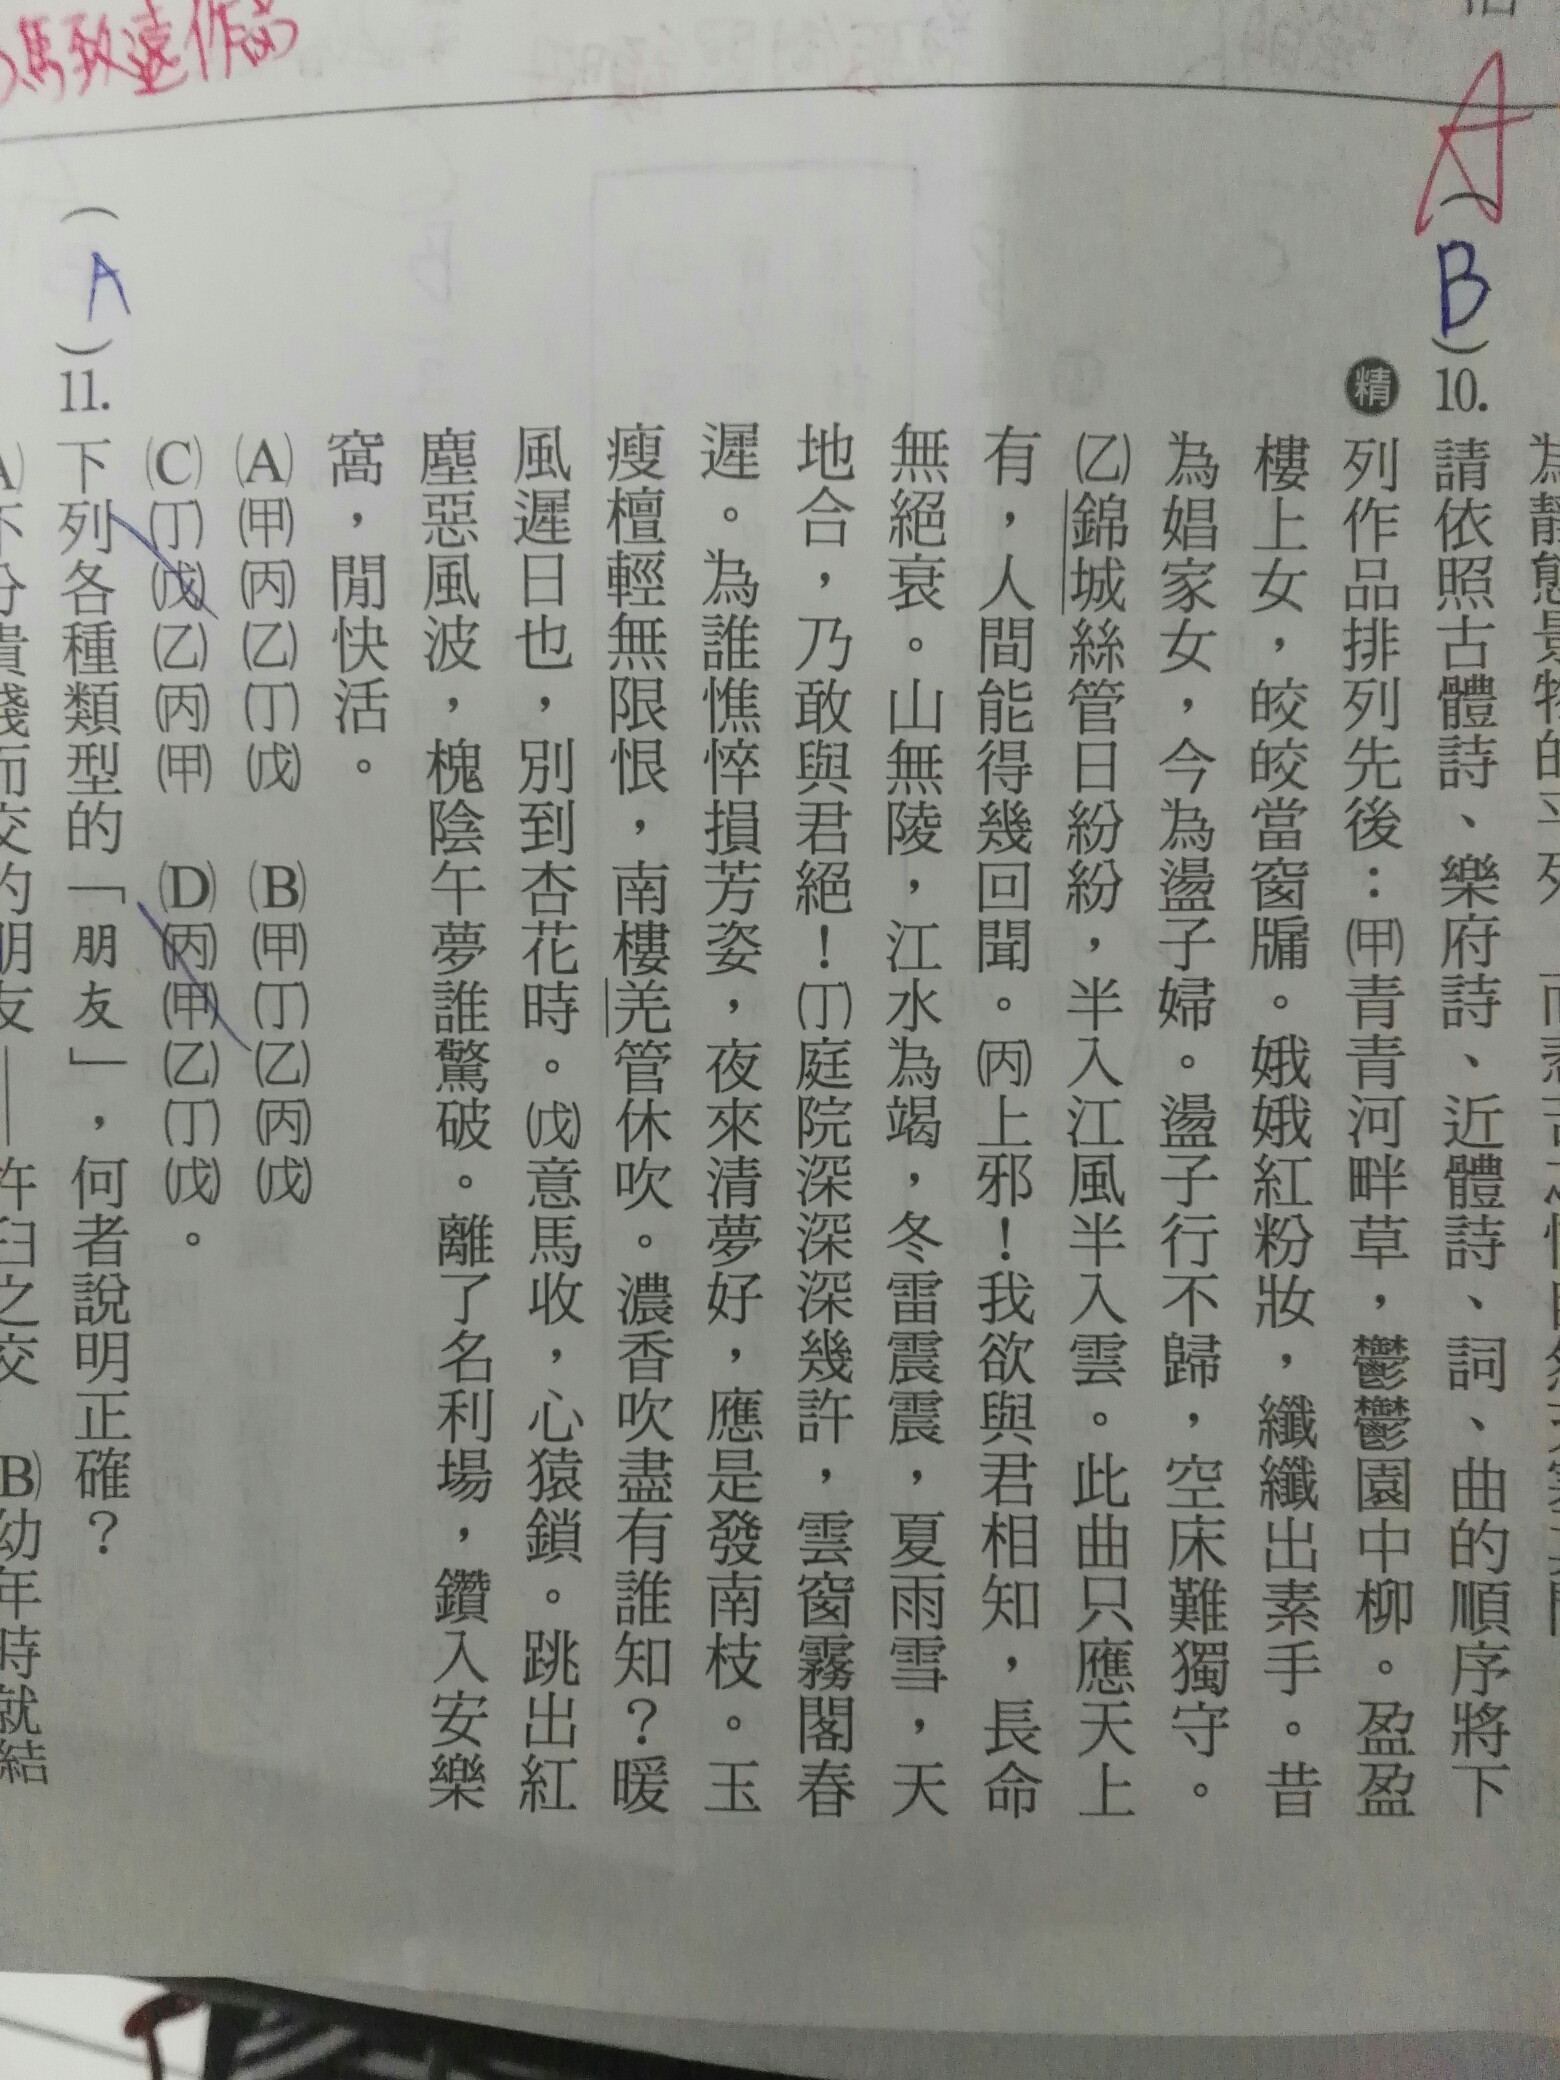 馬致遠作品
A
(B)10.請依照古體詩、樂府詩、近體詩、詞、曲的順序將下
精列作品排列先後：㈙青青河畔草，鬱鬱園中柳。盈盈
樓上女，皎皎當窗牖。娥娥紅粉妝，纖纖出素手。昔
為娼家女，今為盪子婦。盪子行不歸，空床難獨守。
(乙)錦城絲管日紛紛，半入江風半入雲。此曲只應天上
有，人間能得幾回聞。(丙)上邪！我欲與君相知，長命
無絕衰。山無陵，江水為竭，冬雷震震，夏雨雪，天
地合，乃敢與君絕！(丁)庭院深深深幾許，雲窗霧閣春
遲。為誰憔悴損芳姿，夜來清夢好，應是發南枝。玉
瘦檀輕無限恨，南樓羌管休吹。濃香吹盡有誰知？暖
風遲日也，別到杏花時。(戊)意馬收，心猿鎖。跳出紅
塵惡風波，槐陰午夢誰驚破。離了名利場，鑽入安樂
窩，閒快活。
(A)(甲)(丙)(乙)(丁)(戊) (B)(甲)(丁)(乙)(丙)(戊)
(C)(丁)(戊)(乙)(丙)(甲) (D)(丙)(甲)(乙)(丁)(戊)。
(A)11.下列各種類型的「朋友」，何者說明正確？
(A)不分貴賤而交的朋友——杵臼之交 (B)幼年時就結